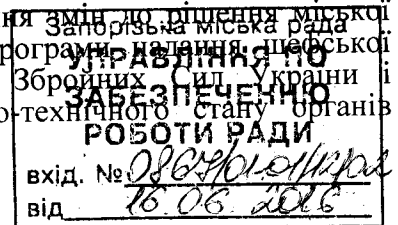 ння змін до рішення міської
Запорізька міська рада
рограми надання шефської
УПРАВЛІННЯ ПО
Збройних Сил України і
ЗАБЕЗПЕЧЕННЮ
о-технічного стану органів
РОБОТИ РАДИ
вхід. №
від 16.06.2016